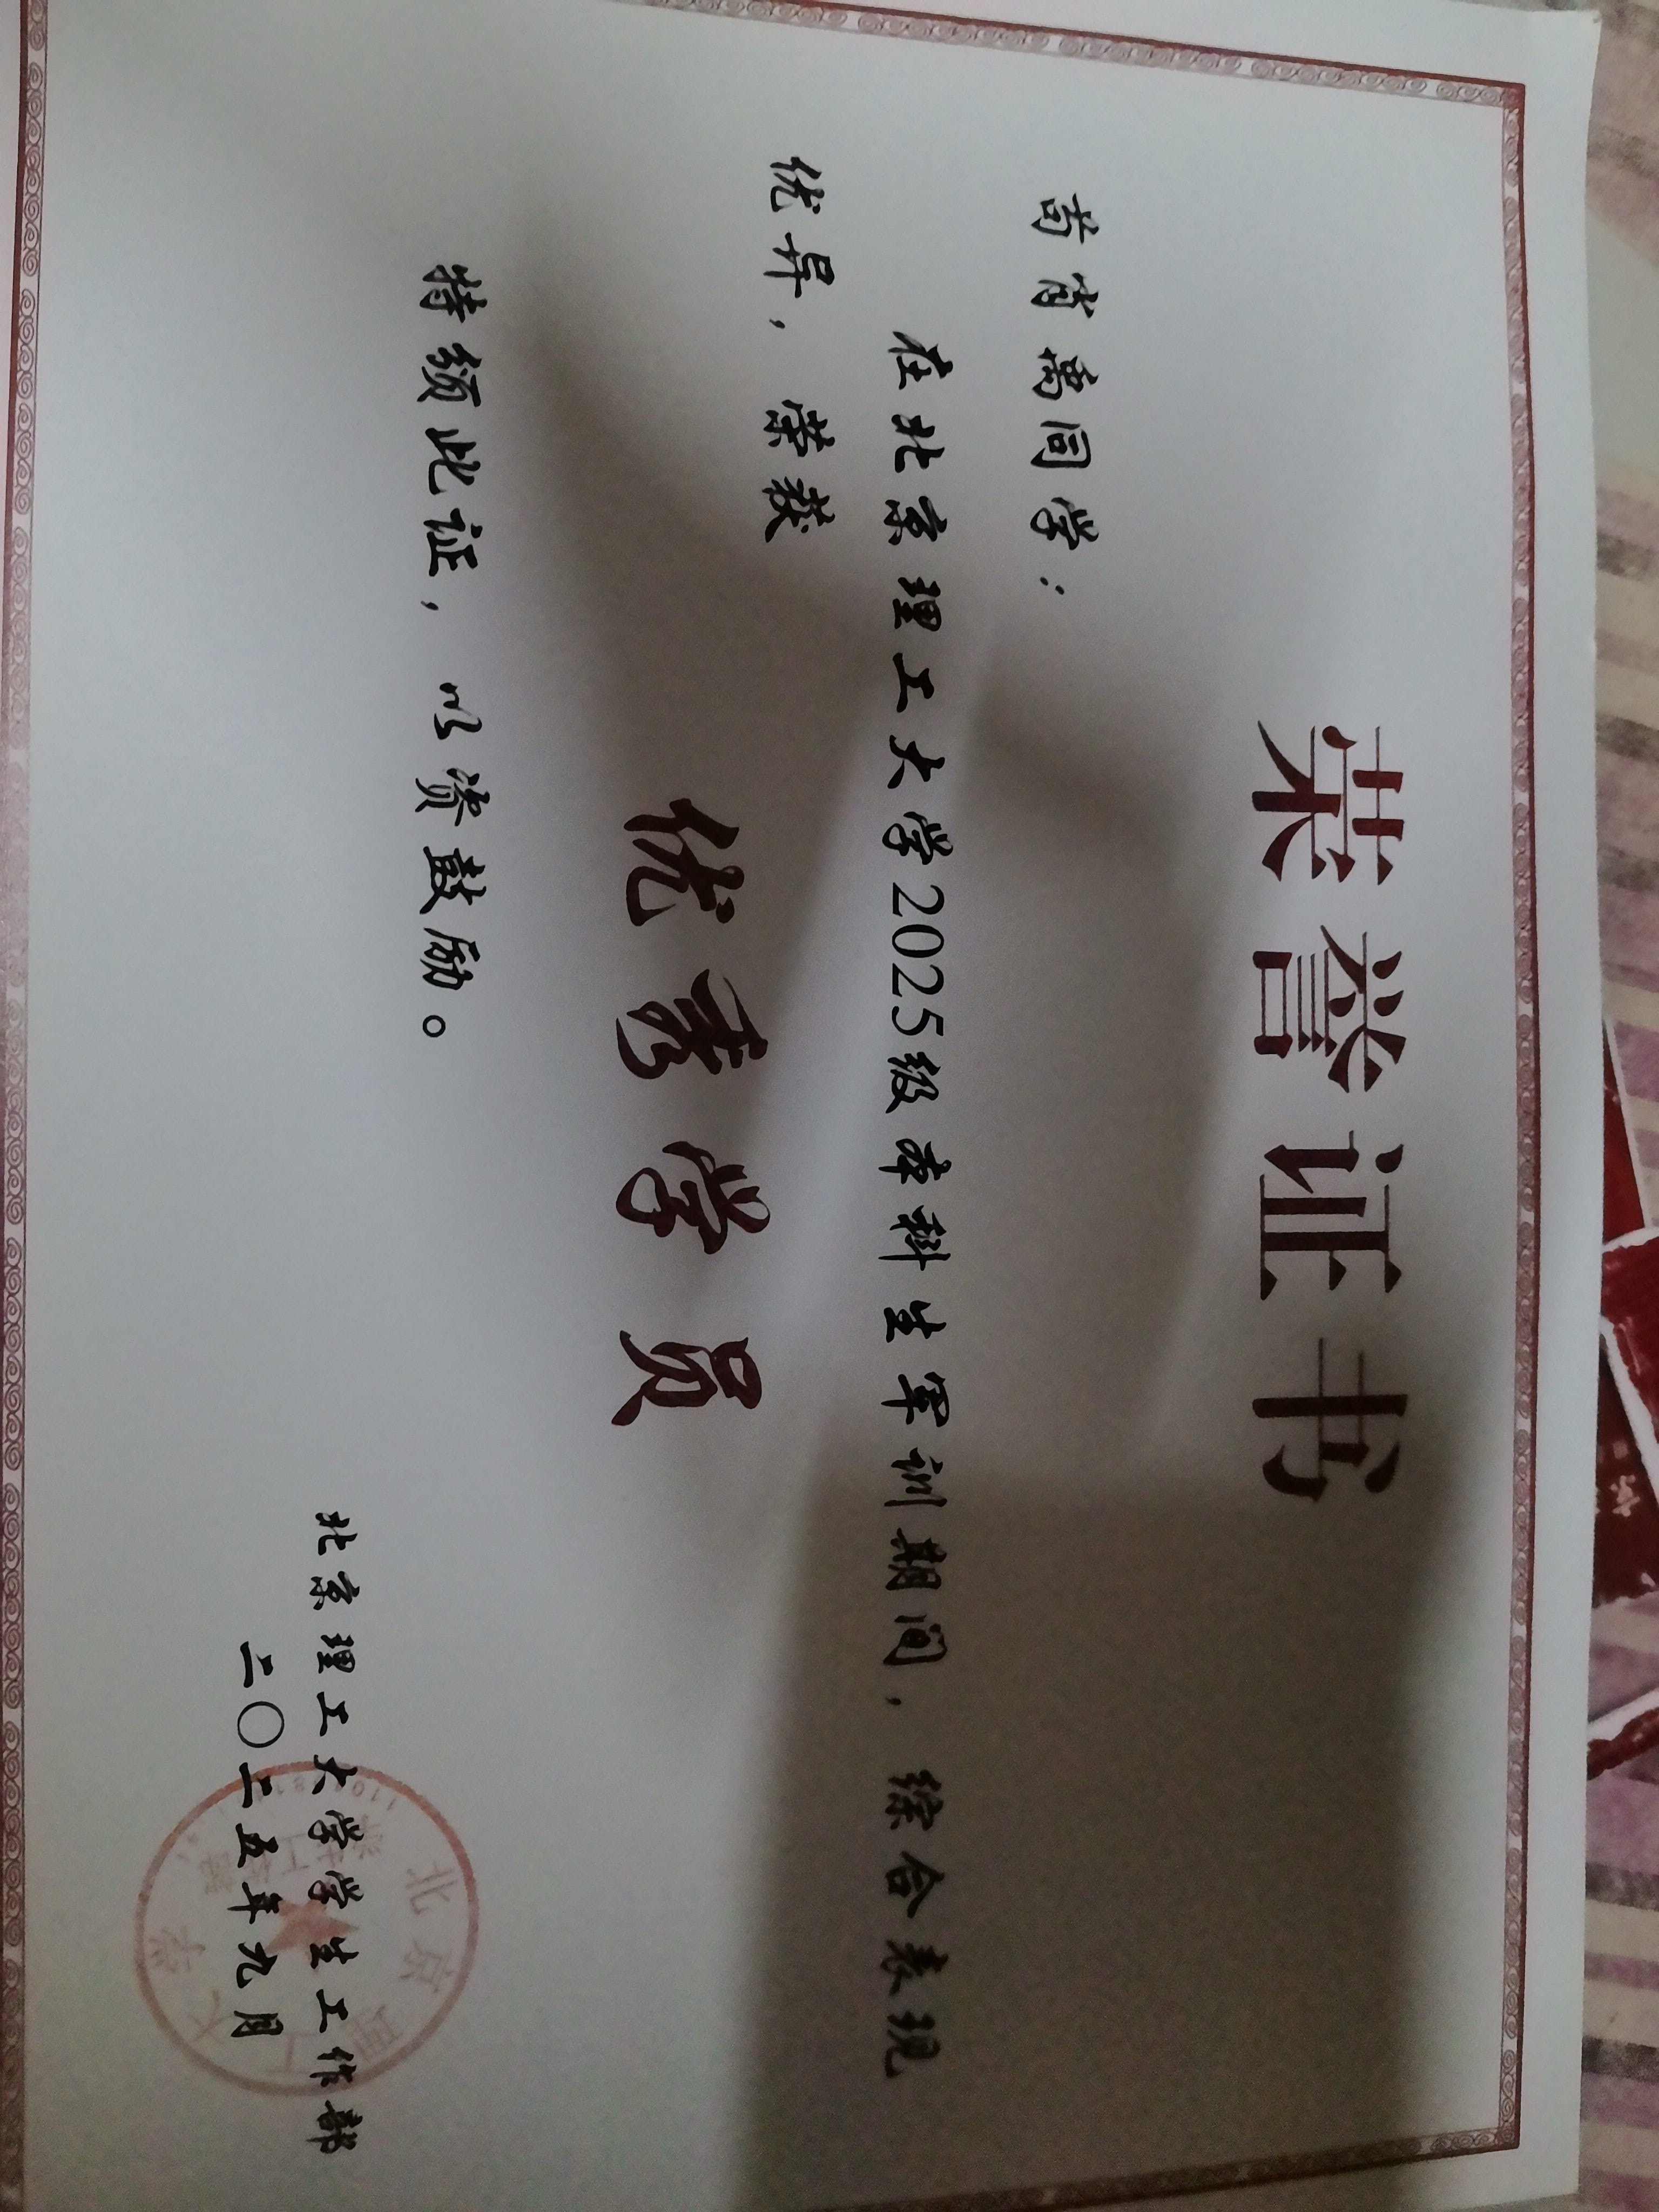 荣誉证书
尚肖禹同学：
在北京理工大学2025级本科生军训期间，综合表现
优异，荣获
优秀学员
特颁此证，以资鼓励。
北京理工大学学生工作部
二〇二五年九月
北京理工大学
学生工作部